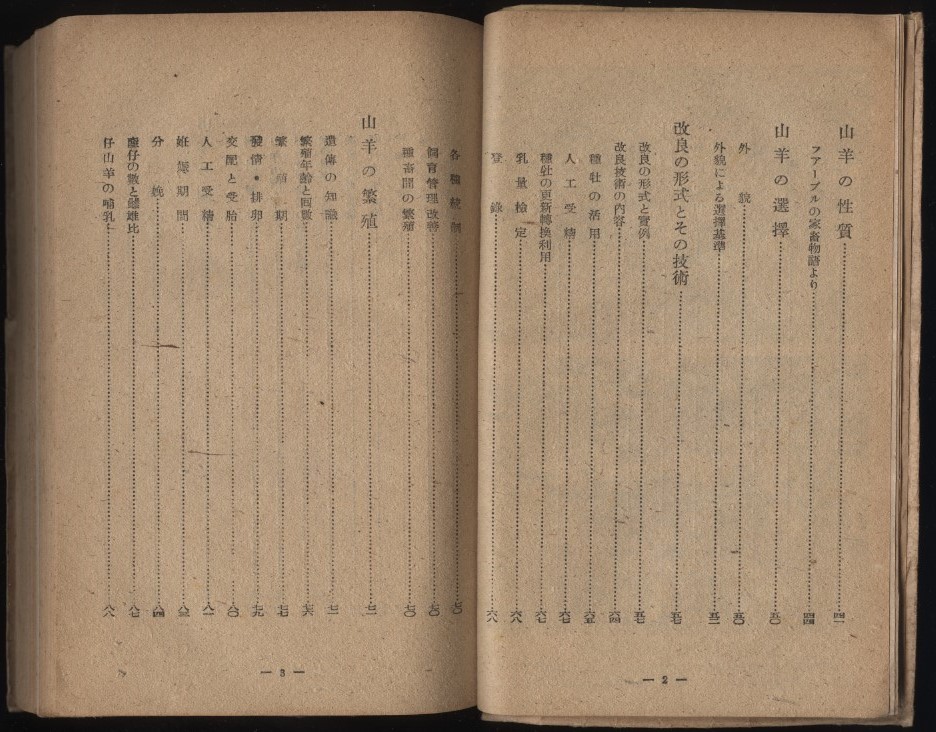 山羊の性質……四一
ファーブルの家畜物語より……四四
山羊の選擇……五〇
外貌……五〇
外貌による選擇基準……五二
改良の形式とその技術……五七
改良の形式と實例……五七
改良技術の内容……六四
種牡の活用……六五
人工受精……六七
種牡の更新轉換利用……六七
乳量檢定……六八
登錄……六八
— 2 —
各種統制……七〇
飼育管理改善……七〇
種畜間の繁殖……七〇
山羊の繁殖……七二
遺傳の知識……七二
繁殖年齡と回數……七六
繁殖期……七七
發情・排卵……七九
交配と受胎……八〇
人工受精……八一
姙娠期間……八三
分娩……八四
產仔の數と雌雄比……八七
仔山羊の哺乳……八八
— 3 —